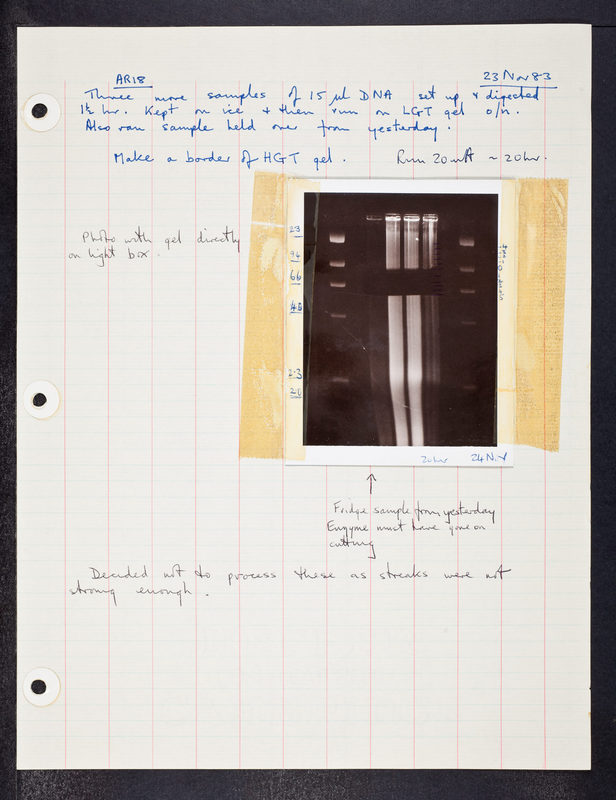 AR18 23 Nov 83
Three more samples of 15 µl DNA set up & digested
1½ hr. Kept on ice & then run on LGT gel o/n.
Also ran sample held over from yesterday.
Make a border of HGT gel. Run 20 mA ~ 20hr.
Photo with gel directly
on light box.
23
94
66
2.3
20
20hr 24 Nov
↑
Fridge sample from yesterday
Enzyme must have gone on
cutting
Decided not to process these as streaks were not
strong enough.